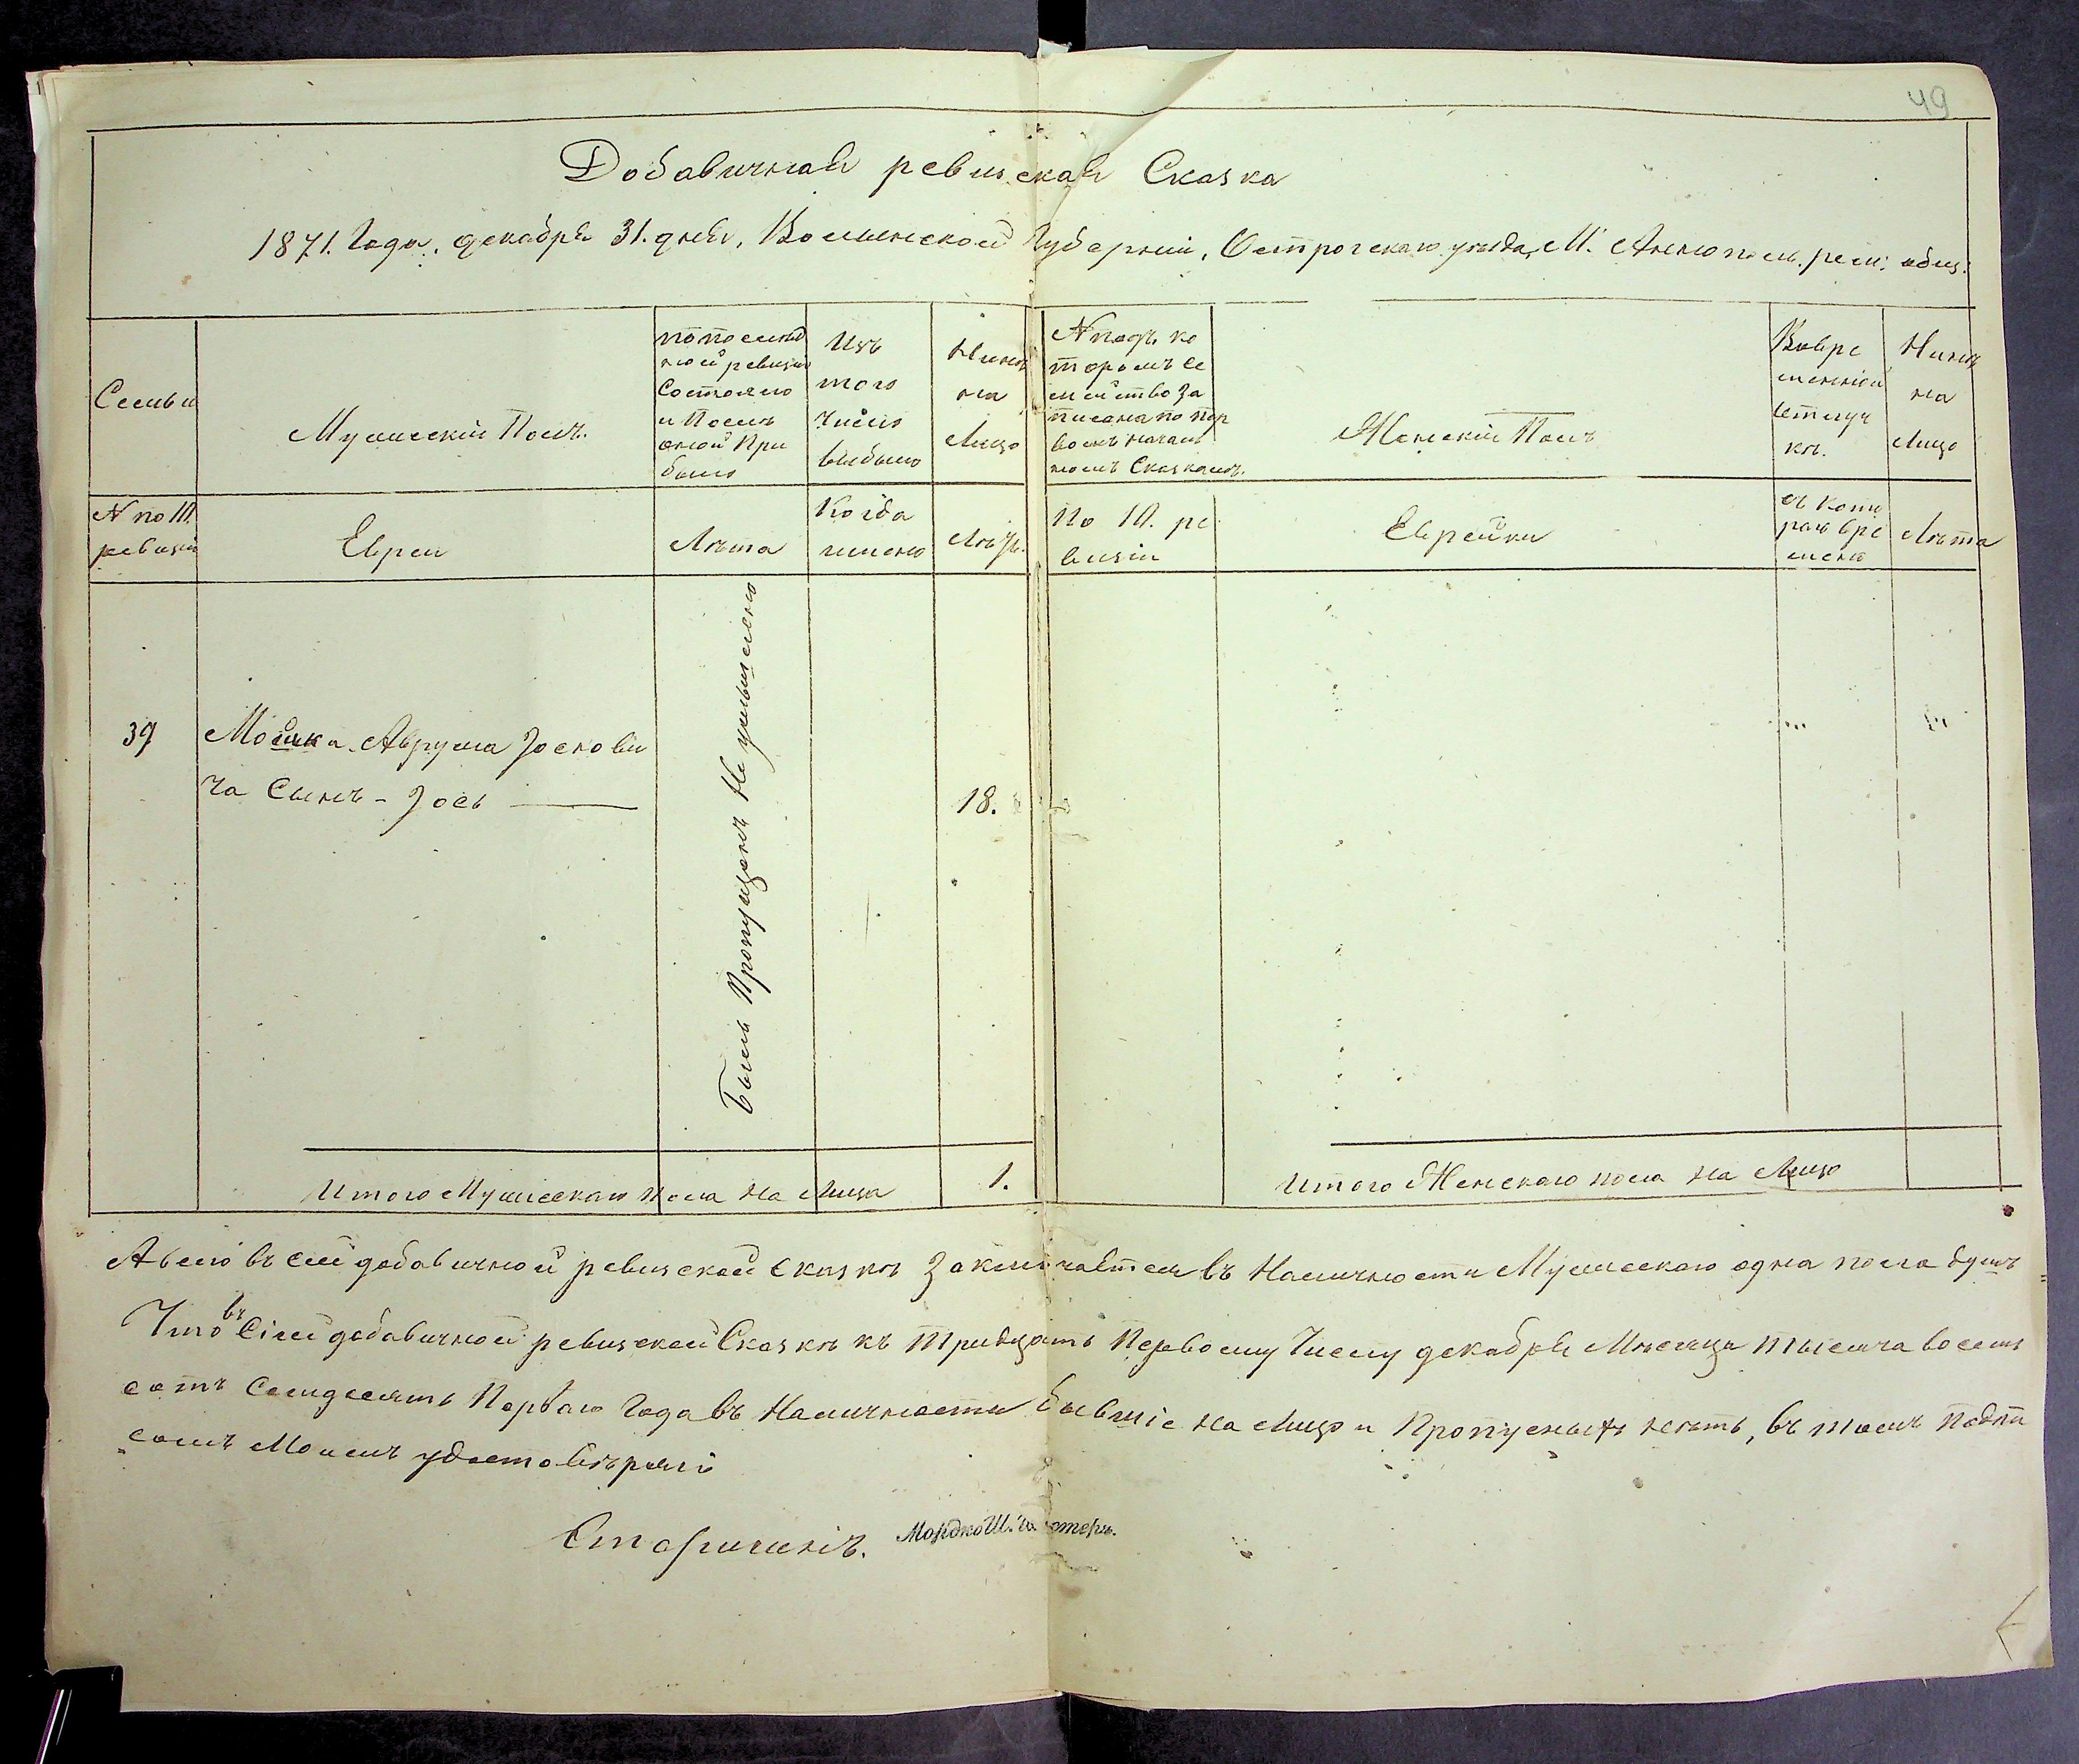 49
Добавичная ревизская Сказка
1871. Года. декабря 31. дня, Волынской Губерніи, Острогскаго уезда, М. Аннополь. рем: общ:
Семьи
Мужескій Полъ.
по послѣд
ней ревизіи
Состояло
и Послѣ
оной При
было
Изъ
того
Числа
выбыло
Нынѣ
на
Лицо
N подъ ко
торомъ се
мейство за
писана по пер
воначаль
номъ Сказкамъ.
Женскій Полъ
Вовре
менной
отлуч
кѣ.
Нынѣ
на
Лицо
N по 10.
ревизіи
Евреи
Лѣта
Когда
имено
Лѣта
По 10. ре
визіи
Еврейки
съ кото
раго вре
мени
Лѣта
Былъ Пропущенъ Не умышлено
39
Мошка Аврума Іоскови
ча Сынъ - Іось
18.
Итого Мужескаго пола на Лицо
1.
Итого Женскаго пола на Лицо
А всего въ сей добавичной ревизской сказкѣ Заключается въ Наличности Мужескаго одна пола душъ
Что въ сіей добавичной ревизской Сказкѣ къ тридцать Первому Числу декабря Мѣсяца тысяча восемь
сотъ Семдесять Перваго Года въ Наличности бывшіе на Лицо и Пропускныхъ нетъ, въ томъ подпи
сомъ Моимъ удостовѣряю
Старшинѣ. Мордко Ш.